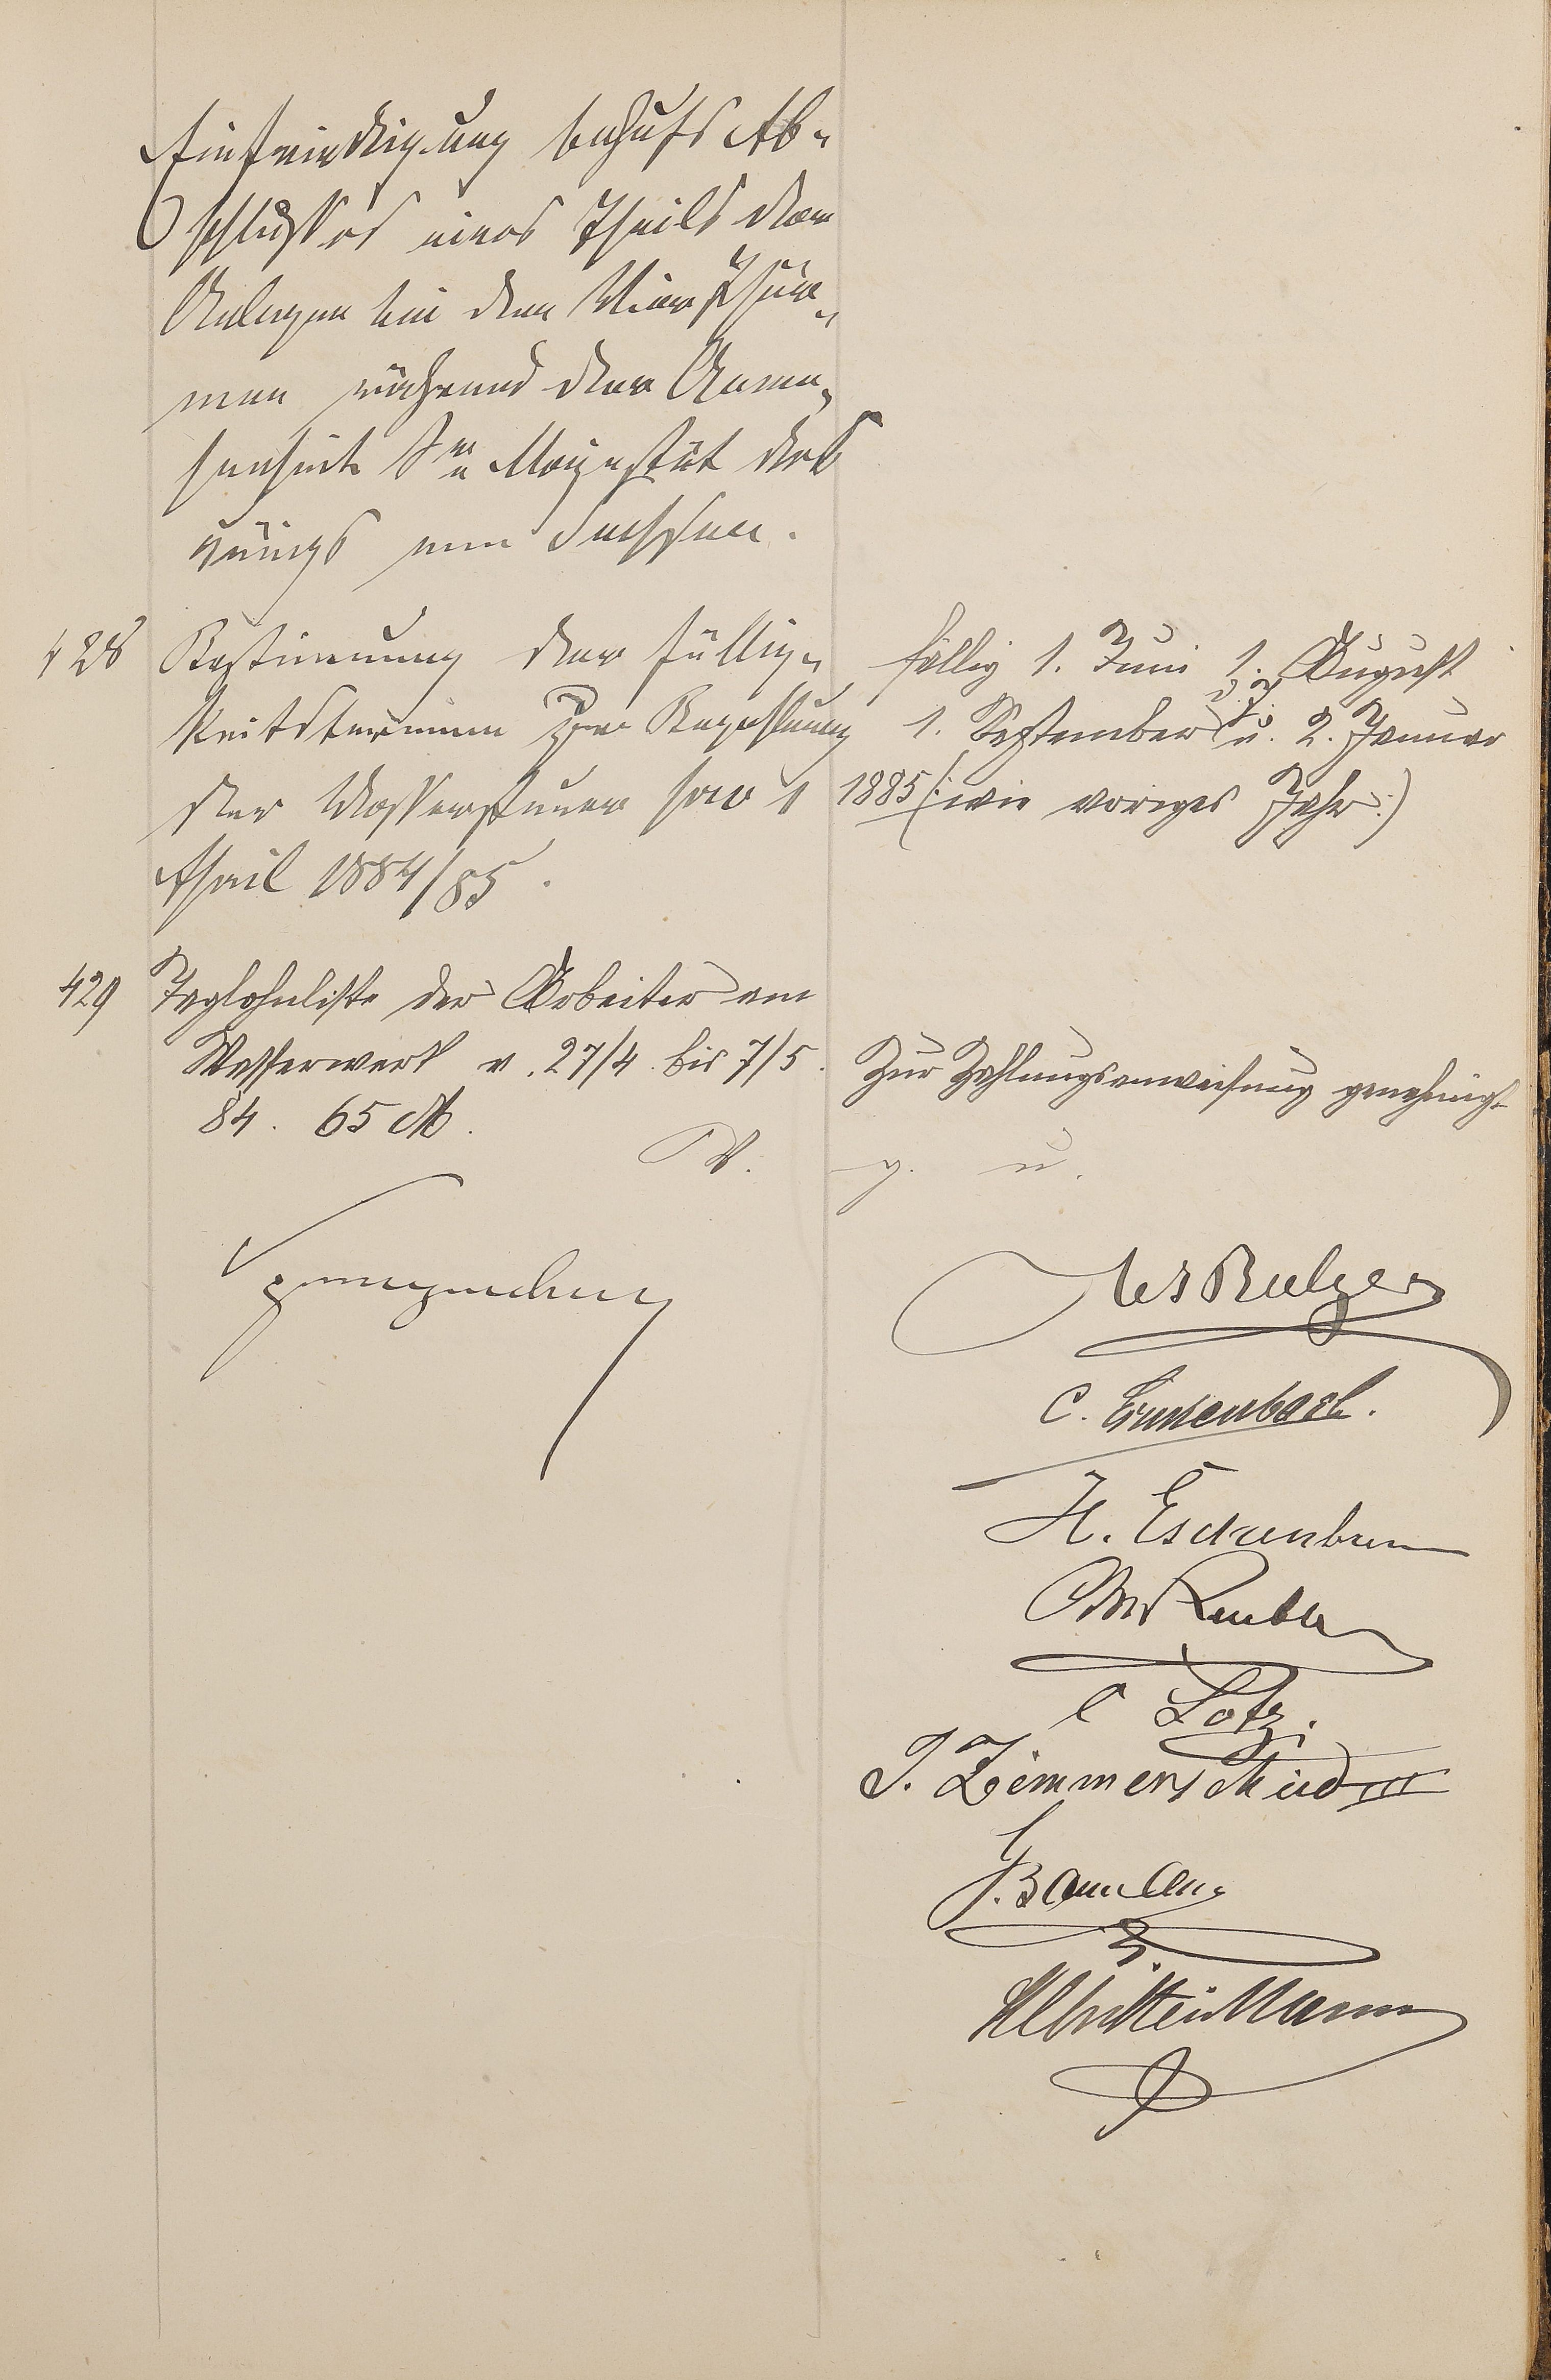 Einfriedigung behufs Ab-
schlusses eines Theils der
Anlagen bei den Vier Thür-
men während der Anwe-
senheit Sr. Majestät des
Königs von Sachsen.
428 Bestimmung der Fällig-
keitstermine zur Bezahlung
der Wassersteuer pro 1
April 1884/85.
fällig 1. Juni 1. August
1. September u. 2. Januar
1885 (: wie voriges Jahr :)
429 Taglohnliste der Arbeiter am
Wasserwerk v. 27/4. bis 7/5.
84. 65 M.
Zur Zahlungsanweisung genehmigt
V. g. u.
Balzer
C.
H.
C Lotz.
J. Zimmerschied III
J. Baumann